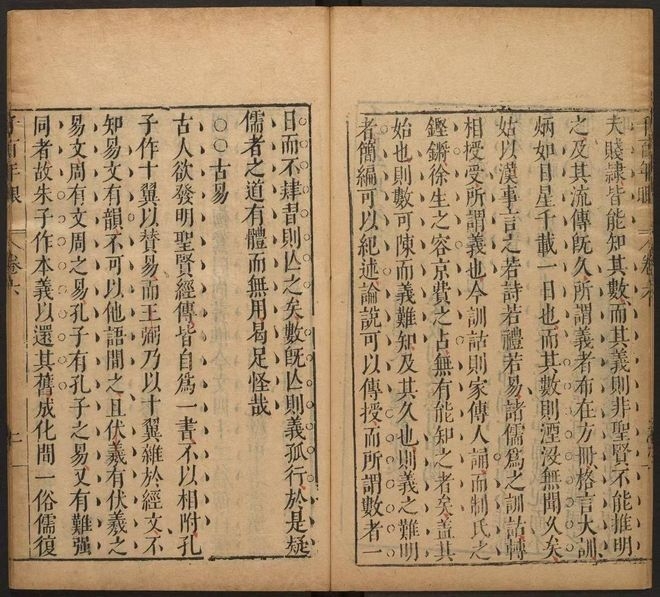 夫賤隷皆能知其數而其義則非聖賢不能推明
之及其流傳旣久所謂義者布在方冊格言大訓
炳如日星千載一日也而其數則湮沒無聞久矣
姑以漢事言之若詩若禮若易諸儒爲之訓詁轉
相授受所謂義也今訓詁則家傳人誦而制氏之
鏗鏘徐生之容京費之占無有能知之者矣盖其
始也則數可陳而義難知及其久也則義之難明
者簡編可以紀述論說可以傳授而所謂數者一
日而不肄㫺則亾之矣數旣亾則義孤行於是疑
儒者之道有體而無用曷足怪哉
○○古易
古人欲發明聖賢經傳皆自爲一書不以相附孔
子作十翼以賛易而王弼乃以十翼雜於經文不
知易文有韻不可以他語間之且伏羲有伏羲之
易文周有文周之易孔子有孔子之易又有難强
同者故朱子作本義以還其舊成化間一俗儒復